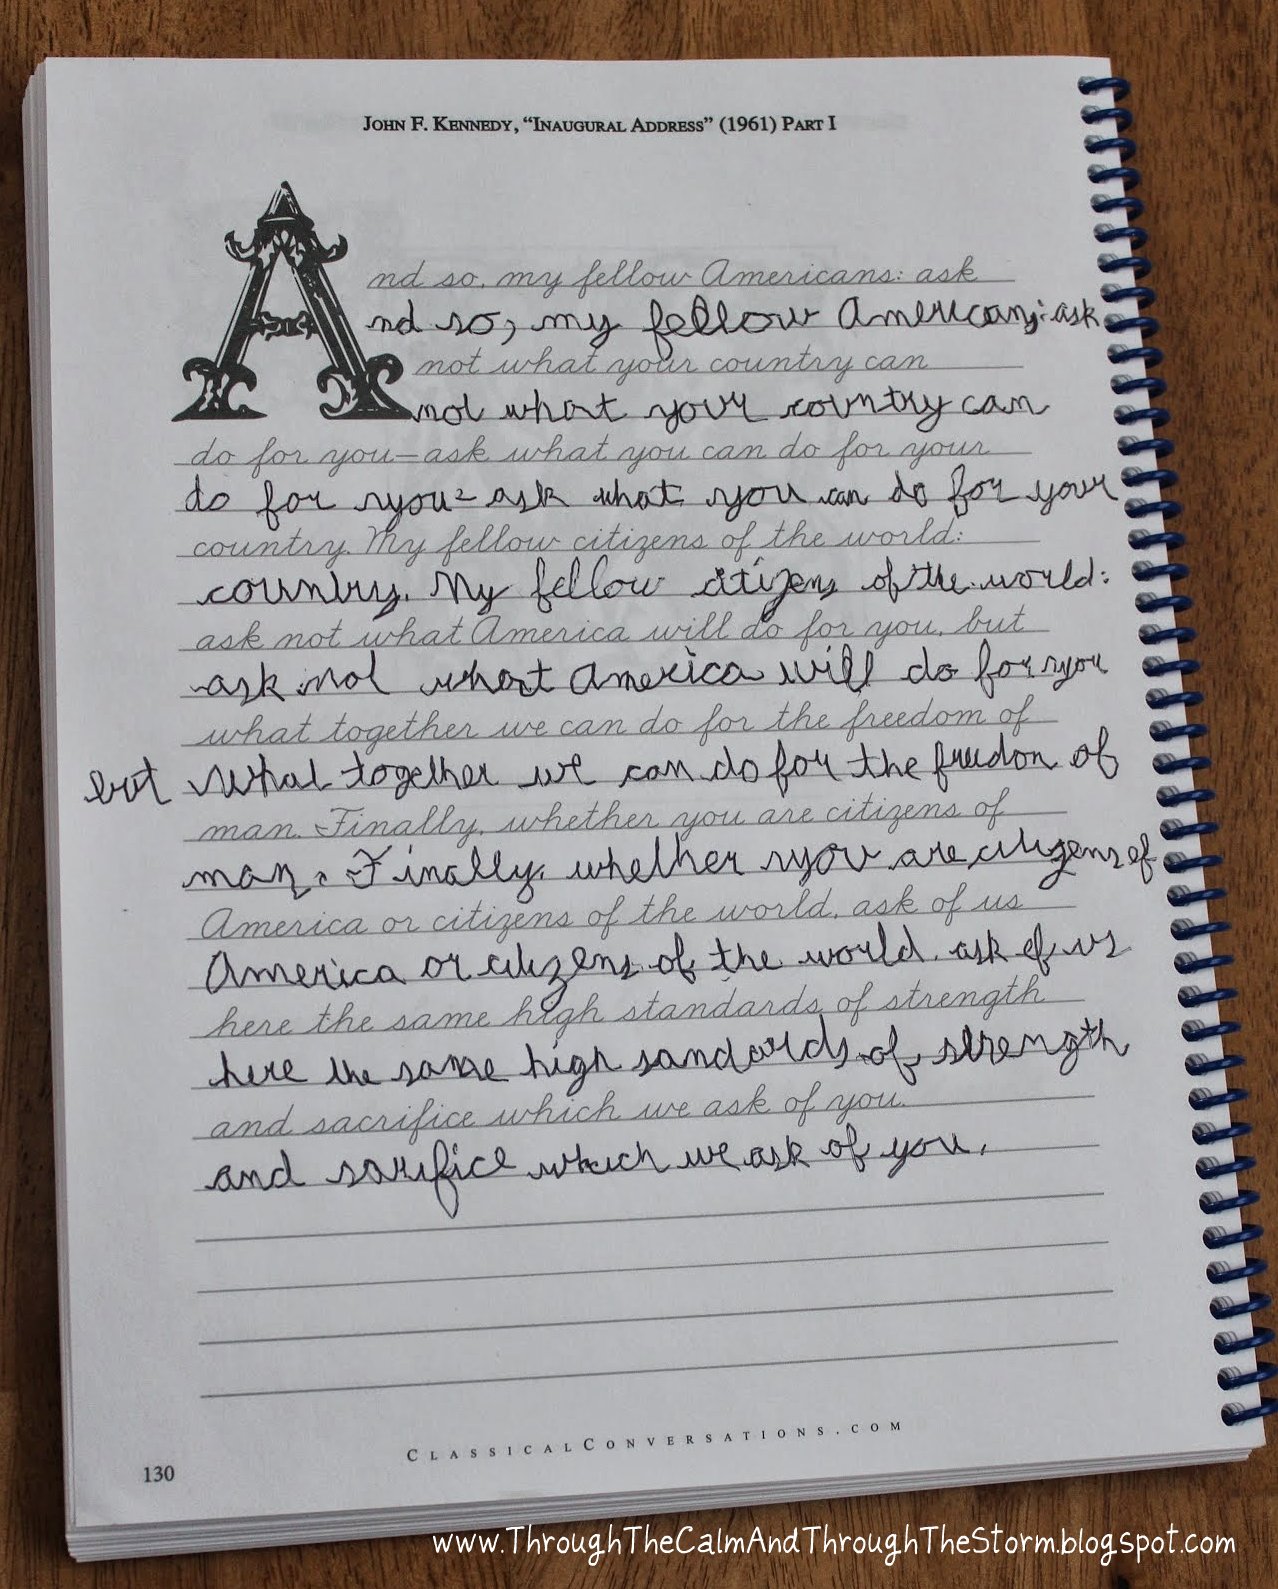 JOHN F. KENNEDY, "INAUGURAL ADDRESS" (1961) PART I
And so, my fellow Americans: ask
nd so, my fellow Americans: ask
not what your country can
not what your country can
do for you—ask what you can do for your
do for you- ask what you can do for your
country. My fellow citizens of the world:
country. My fellow citizens of the world:
ask not what America will do for you, but
ask not what America will do for you
what together we can do for the freedom of
but what together we can do for the freedon of
man. Finally, whether you are citizens of
man. Finally, whether you are citizens of
America or citizens of the world, ask of us
America or citizens of the world. ask of us
here the same high standards of strength
here the same high sandards of strength
and sacrifice which we ask of you.
and sarifice which we ask of you.
CLASSICALCONVERSATIONS.COM
130
www.ThroughTheCalmAndThroughTheStorm.blogspot.com